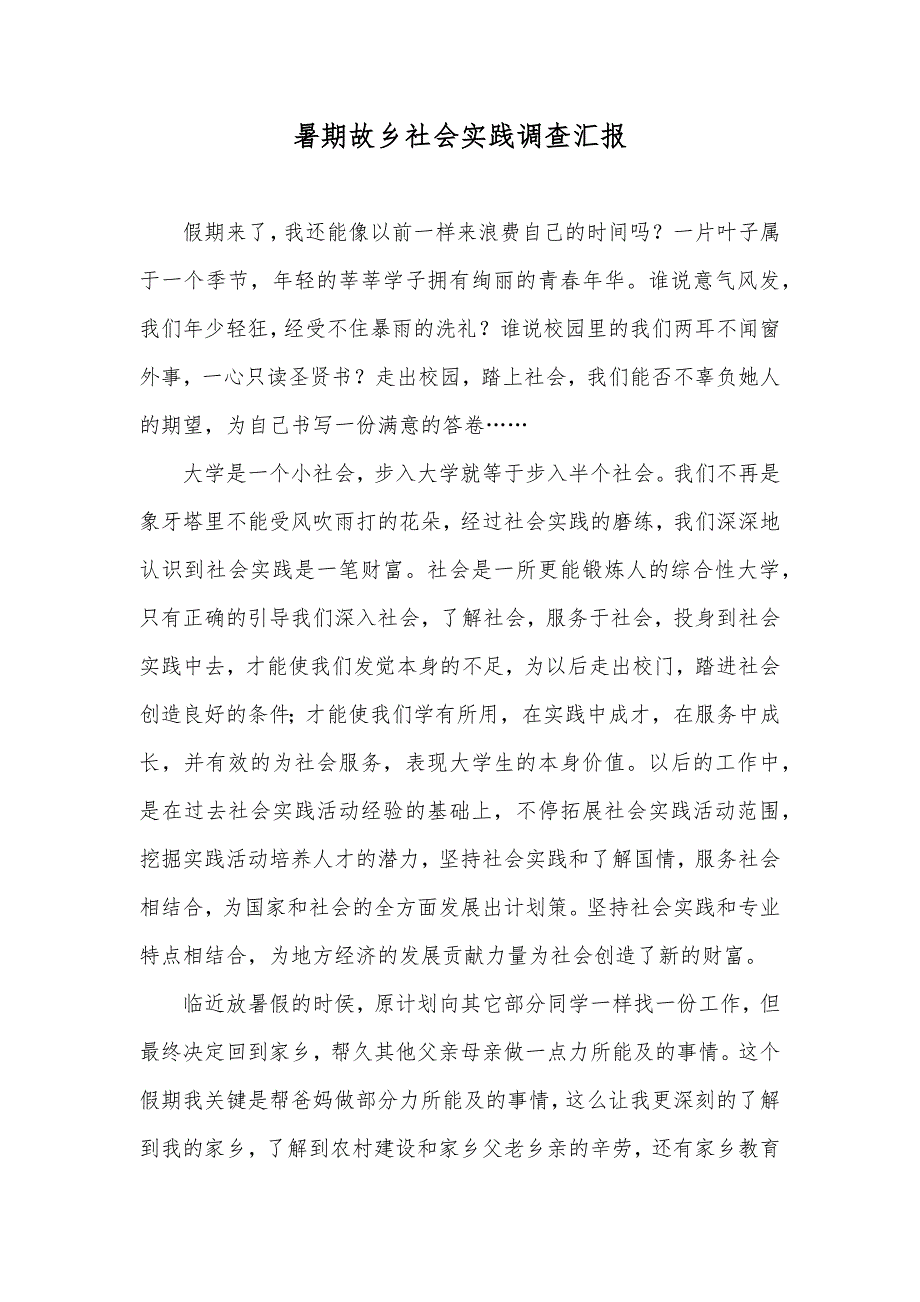 暑期故乡社会实践调查汇报
假期来了，我还能像以前一样来浪费自己的时间吗？一片叶子属
于一个季节，年轻的莘莘学子拥有绚丽的青春年华。谁说意气风发，
我们年少轻狂，经受不住暴雨的洗礼？谁说校园里的我们两耳不闻窗
外事，一心只读圣贤书？走出校园，踏上社会，我们能否不辜负她人
的期望，为自己书写一份满意的答卷……
大学是一个小社会，步入大学就等于步入半个社会。我们不再是
象牙塔里不能受风吹雨打的花朵，经过社会实践的磨练，我们深深地
认识到社会实践是一笔财富。社会是一所更能锻炼人的综合性大学，
只有正确的引导我们深入社会，了解社会，服务于社会，投身到社会
实践中去，才能使我们发觉本身的不足，为以后走出校门，踏进社会
创造良好的条件；才能使我们学有所用，在实践中成才，在服务中成
长，并有效的为社会服务，表现大学生的本身价值。以后的工作中，
是在过去社会实践活动经验的基础上，不停拓展社会实践活动范围，
挖掘实践活动培养人才的潜力，坚持社会实践和了解国情，服务社会
相结合，为国家和社会的全方面发展出计划策。坚持社会实践和专业
特点相结合，为地方经济的发展贡献力量为社会创造了新的财富。
临近放暑假的时侯，原计划向其它部分同学一样找一份工作，但
最终决定回到家乡，帮久其他父亲母亲做一点力所能及的事情。这个
假期我关键是帮爸妈做部分力所能及的事情，这么让我更深刻的了解
到我的家乡，了解到农村建设和家乡父老乡亲的辛劳，还有家乡教育